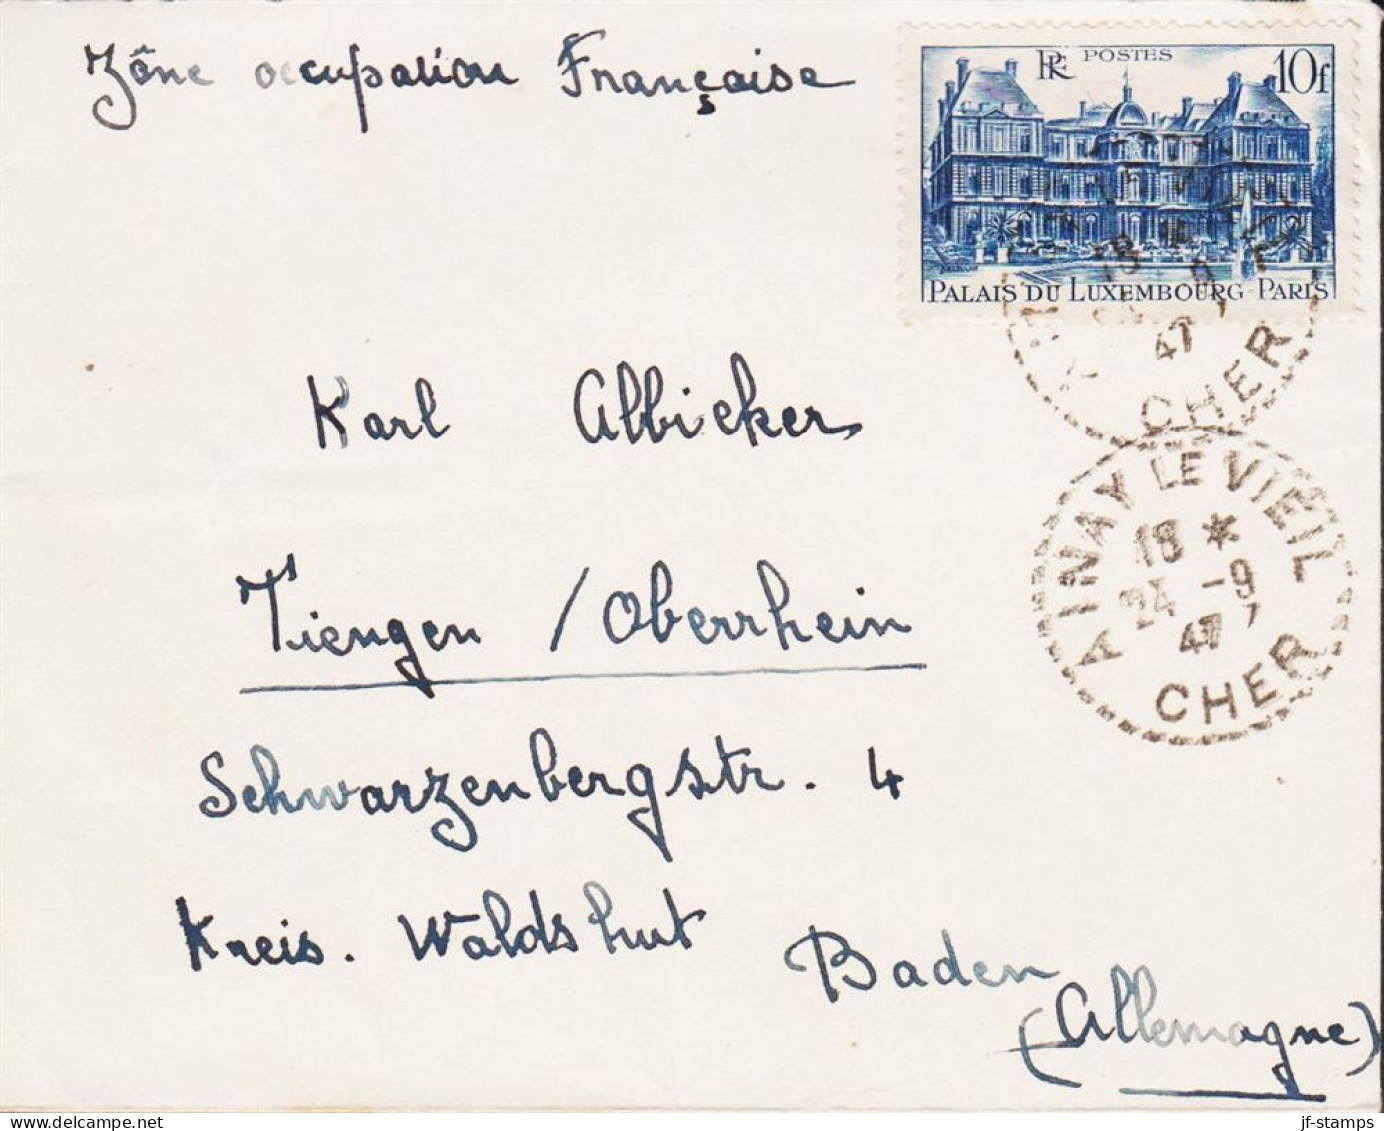 Zône occupation Française
RF POSTES 10f
PALAIS DU LUXEMBOURG-PARIS
18
47
CHER
Karl Albicker
AINAY LE VIEIL
18 *
24 -9
47
CHER
Tiengen / Oberrhein
Schwarzenbergstr. 4
Kreis. Waldshut
Baden
(Allemagne)
jf-stamps